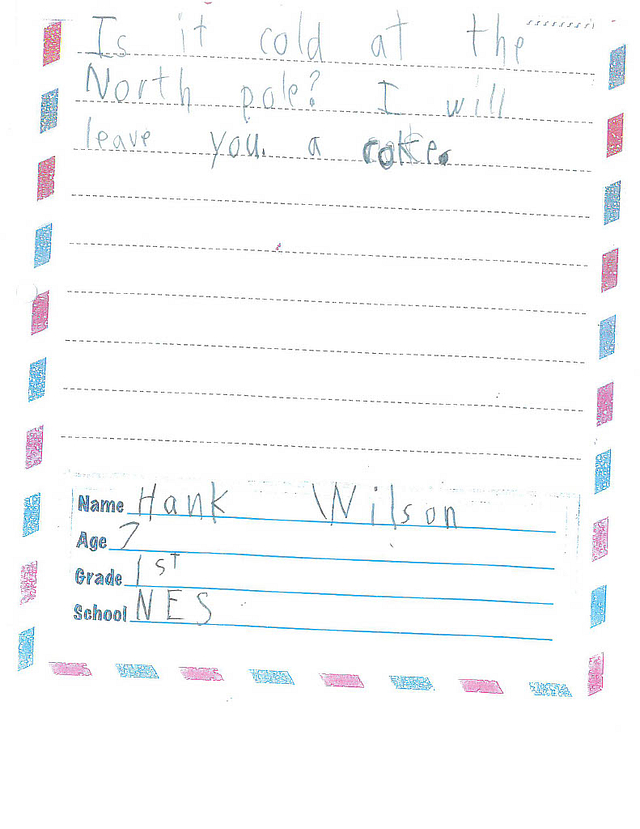 Is it cold at the
North pole? I will
leave you. a coke.
Name Hank Wilson
Age 7
Grade 1sT
School NES